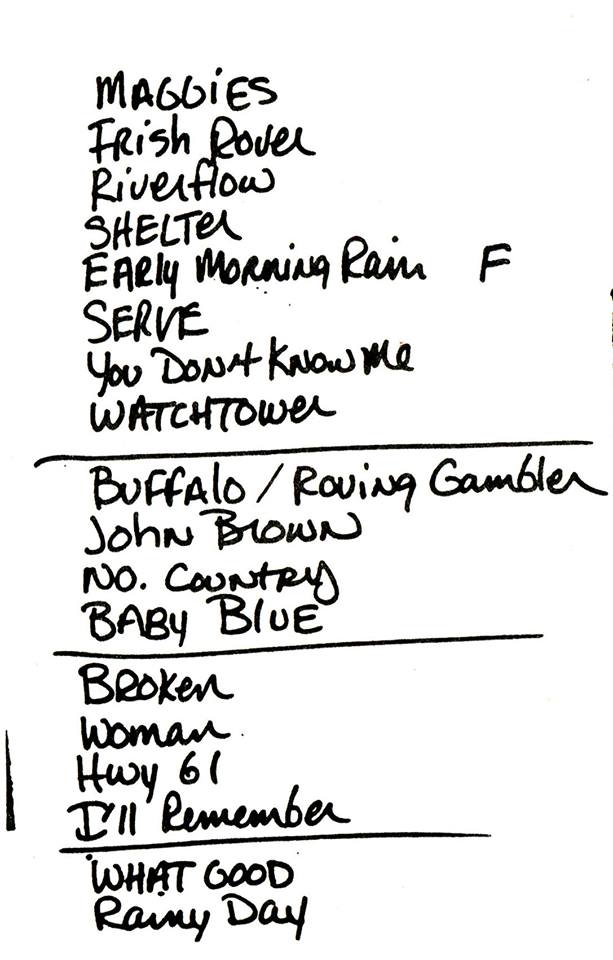 MAGGiES
Irish Rover
Riverflow
SHELTer
EARly Morning Rain F
SERVE
You Don't Know Me
WATCHTOWer
BUFFAlo / Roving Gambler
John Brown
NO. COUNTRy
BABy BlUE
BRoken
Woman
Hwy 61
I'll Remember
WHAT GOOD
Rainy Day